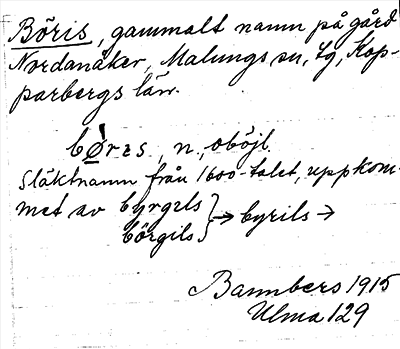 Böris, gammalt namn på gård
Nordanåker, Malungs sn, tg, Kop-
parbergs län.
bø̀rɪs, n., oböjl.
Släktnamn från 1600-talet, uppkom-
met av byrgɪls } → byrils →
börgils
Bannbers 1915
Ulma 129